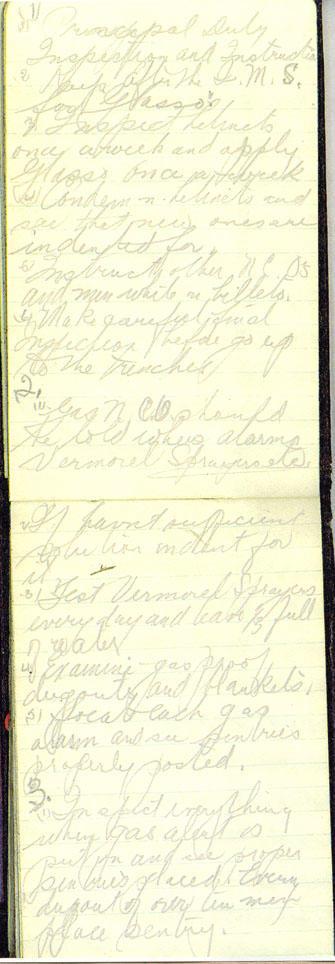 1) Principal Duty
Inspection and Instruction
2 Keep after the Q. M. S.
for Glasso's
3 Inspect helmets
once a week and apply
Glasso once a week
4 Condemn helmets and
see that new ones are
indented for.
5 Instruct other N.C.Os
and men while in billets.
Make careful
inspection before go up
to the trenches
2.
1) Gas N.C.O. should
be told where alarms
Vermorel Sprayers etc.
2) If havnt sufficient
solution indent for
it
3) Test Vermorel Sprayers
every day and have 2/3 full
of water
4. Examine gas proof
dugouts and blankets.
5) Locate each gas
alarm and see sentries
properly posted.
3.
1) Inspect everything
when gas alert is
put on and see proper
sentries placed. Every
dugout of over ten men
place sentry.